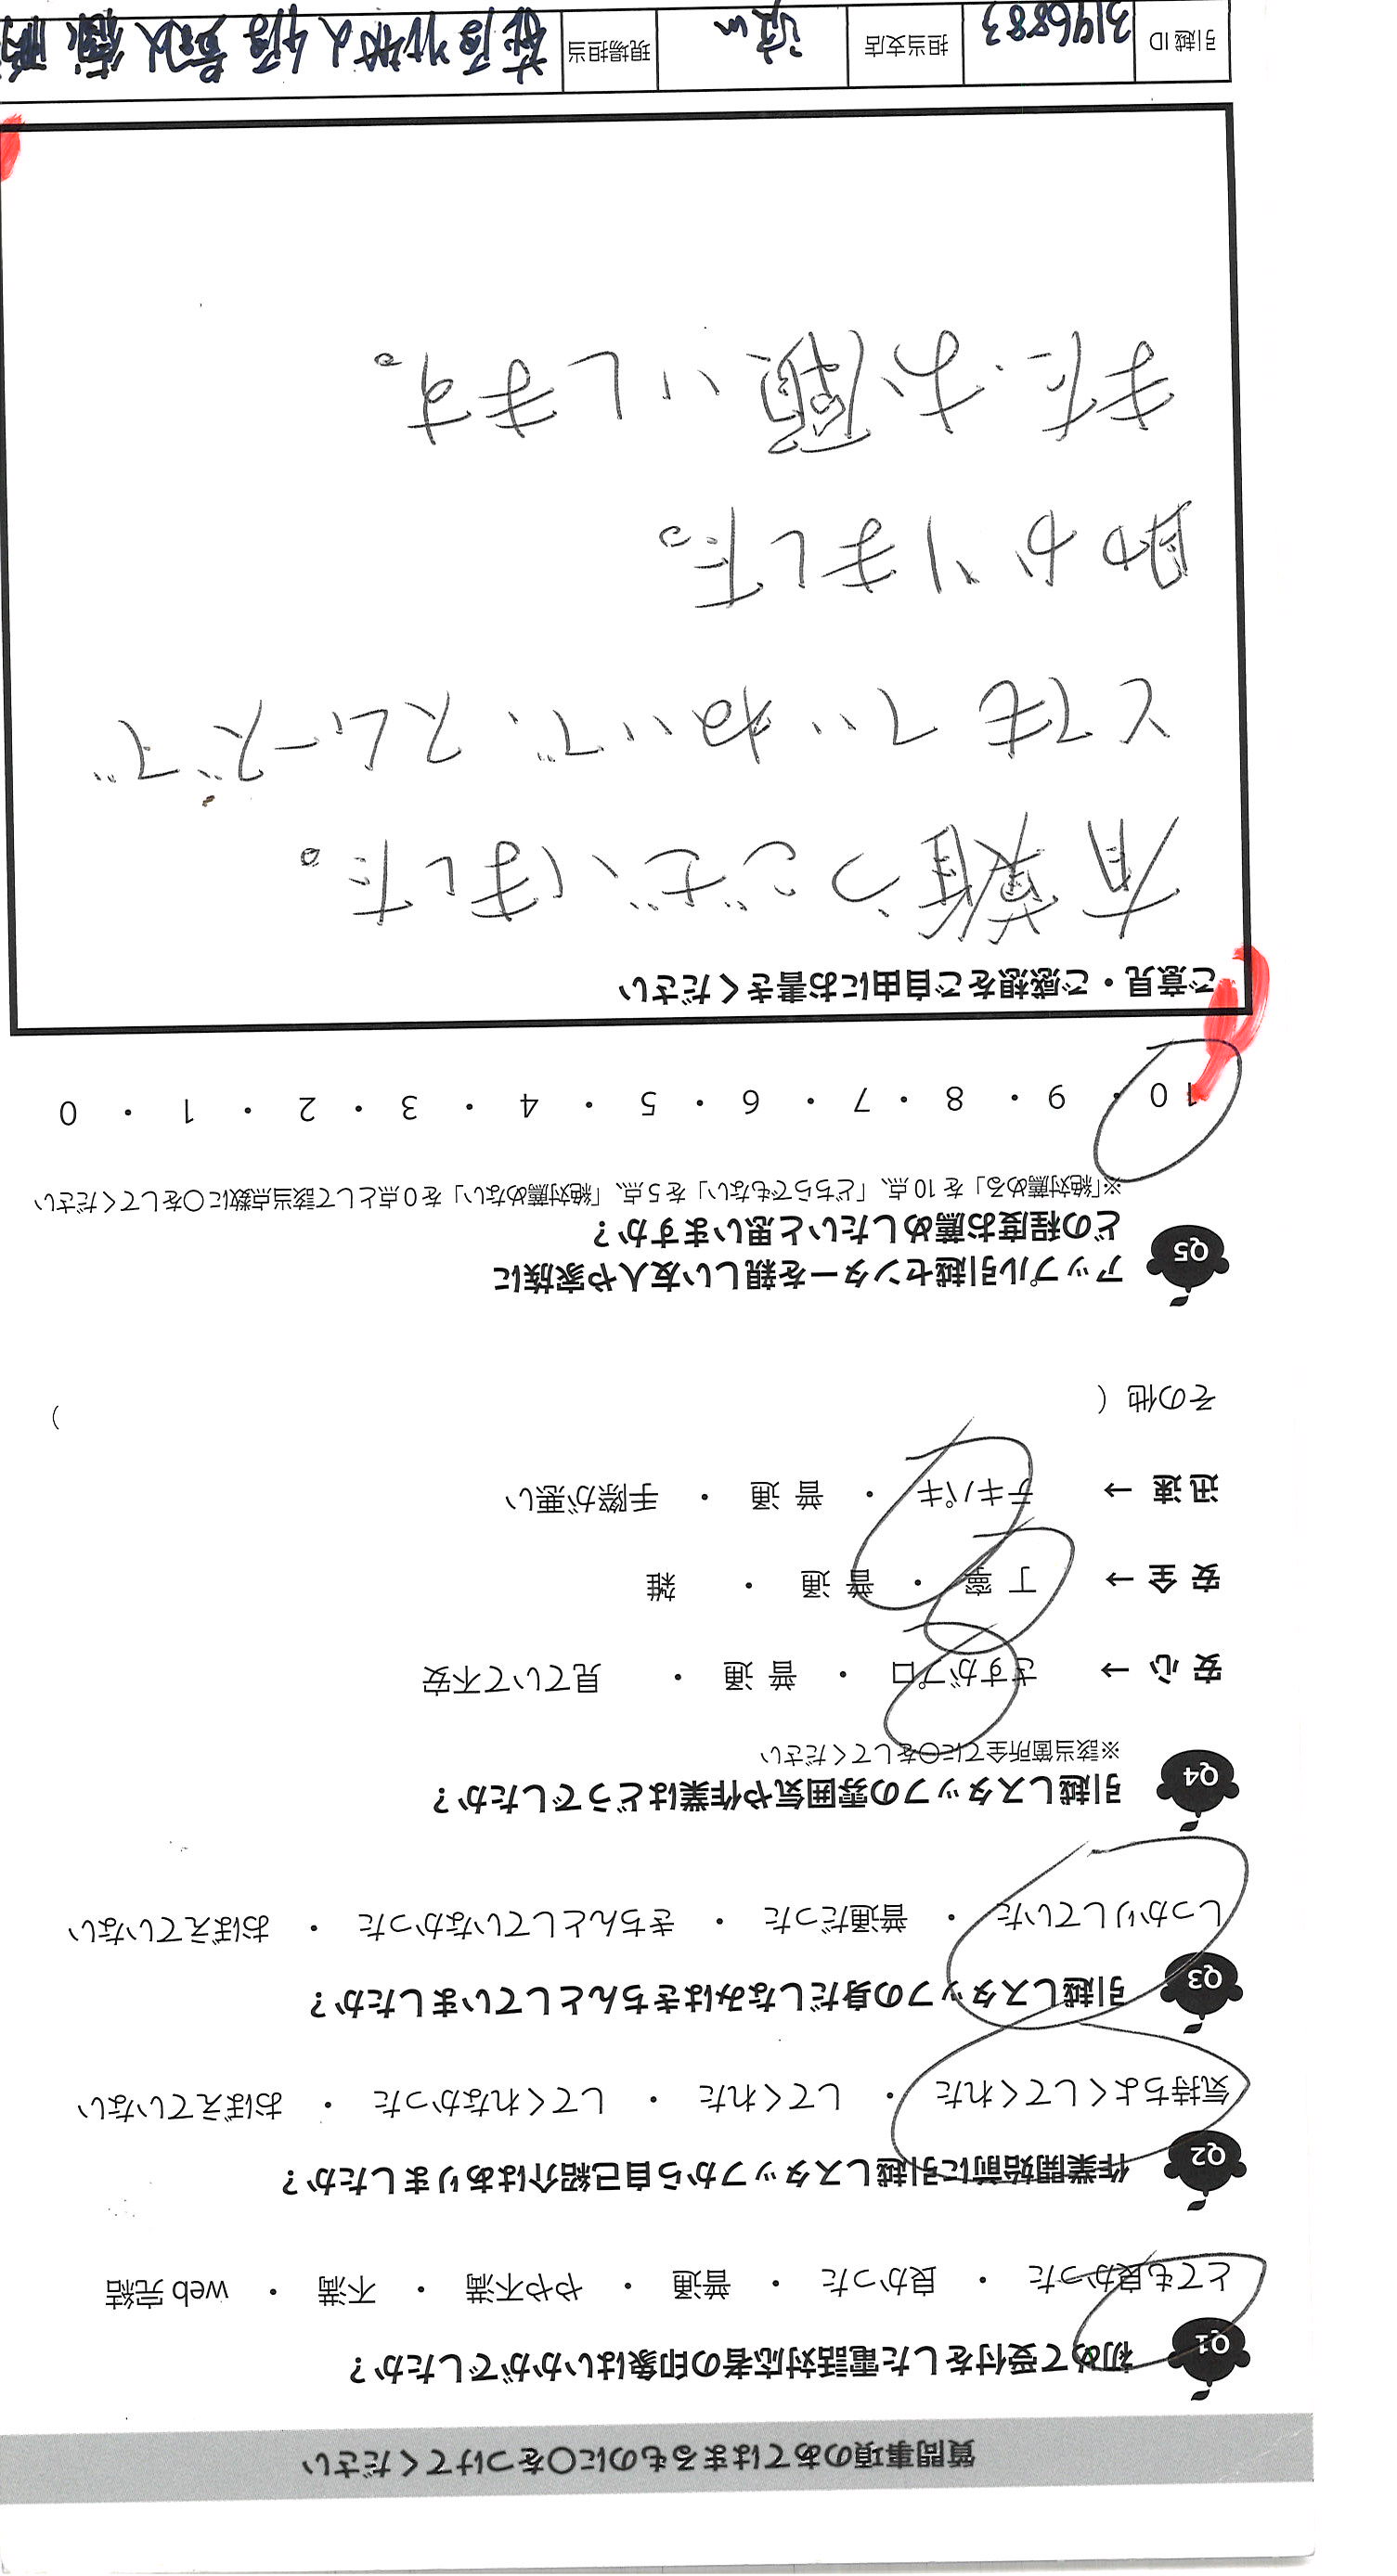 質問事項のあてはまるものに○をつけてください
Q1 初めて受付をした電話対応者の印象はいかがでしたか？
とても良かった ・ 良かった ・ 普通 ・ やや不満 ・ 不満 ・ web 完結
Q2 作業開始前に引越しスタッフから自己紹介はありましたか？
気持ちよくしてくれた ・ してくれた ・ してくれなかった ・ おぼえていない
Q3 引越しスタッフの身だしなみはきちんとしていましたか？
しっかりしていた ・ 普通だった ・ きちんとしていなかった ・ おぼえていない
Q4 引越しスタッフの雰囲気や作業はどうでしたか？
※該当箇所全てに○をしてください
安 心 → さすがプロ ・ 普 通 ・ 見ていて不安
安 全 → 丁 寧 ・ 普 通 ・ 雑
迅 速 → テキパキ ・ 普 通 ・ 手際が悪い
その他（ ）
Q5 アップル引越センターを親しい友人や家族に
どの程度お薦めしたいと思いますか？
※「絶対薦める」を 10 点、「どちらでもない」を 5 点、「絶対薦めない」を 0 点として該当点数に○をしてください
10 ・ 9 ・ 8 ・ 7 ・ 6 ・ 5 ・ 4 ・ 3 ・ 2 ・ 1 ・ 0
ご意見・ご感想をご自由にお書きください
有難うございました。
とてもていねいで、スムーズで
助かりました。
また、お願いします。
引越 ID 3196883 担当支店 現場担当